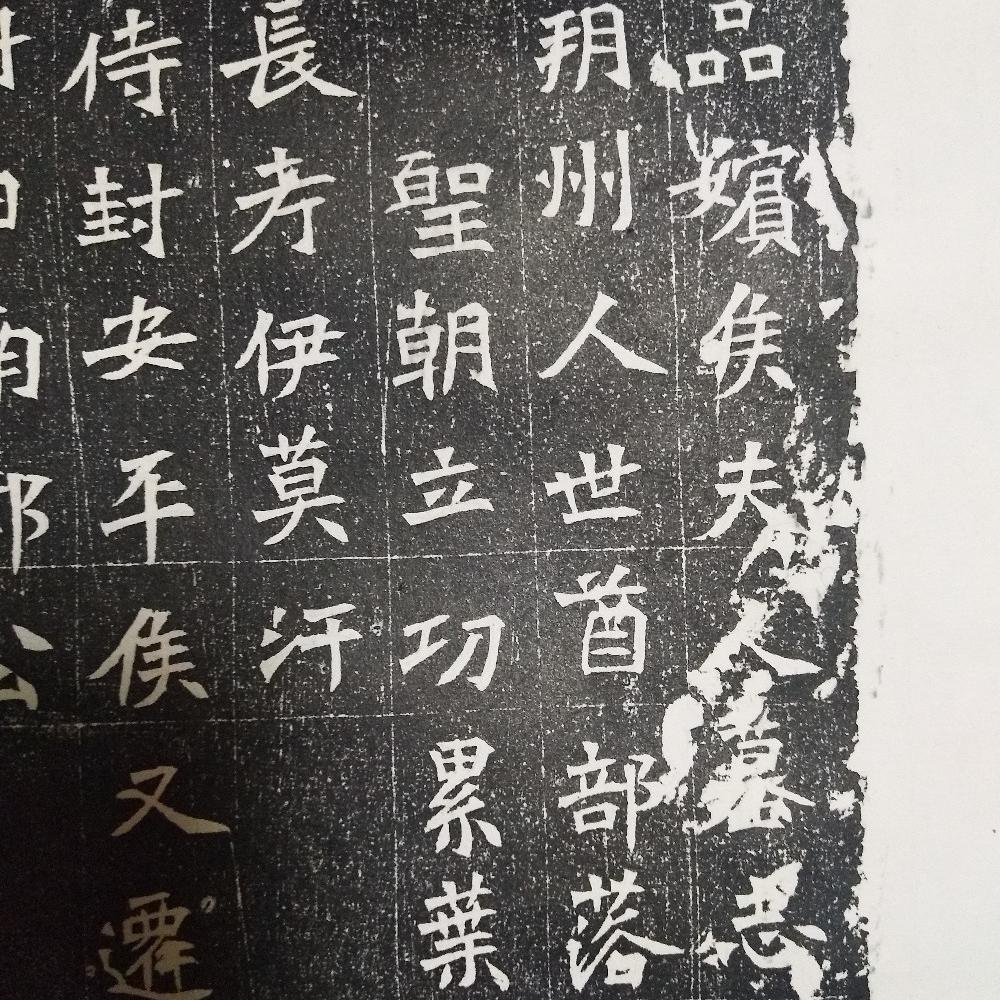 品嬪侯夫人墓志
朔州人世酋部落
聖朝立功累葉
長考伊莫汗
侍封安平侯又遷
封日南郡公